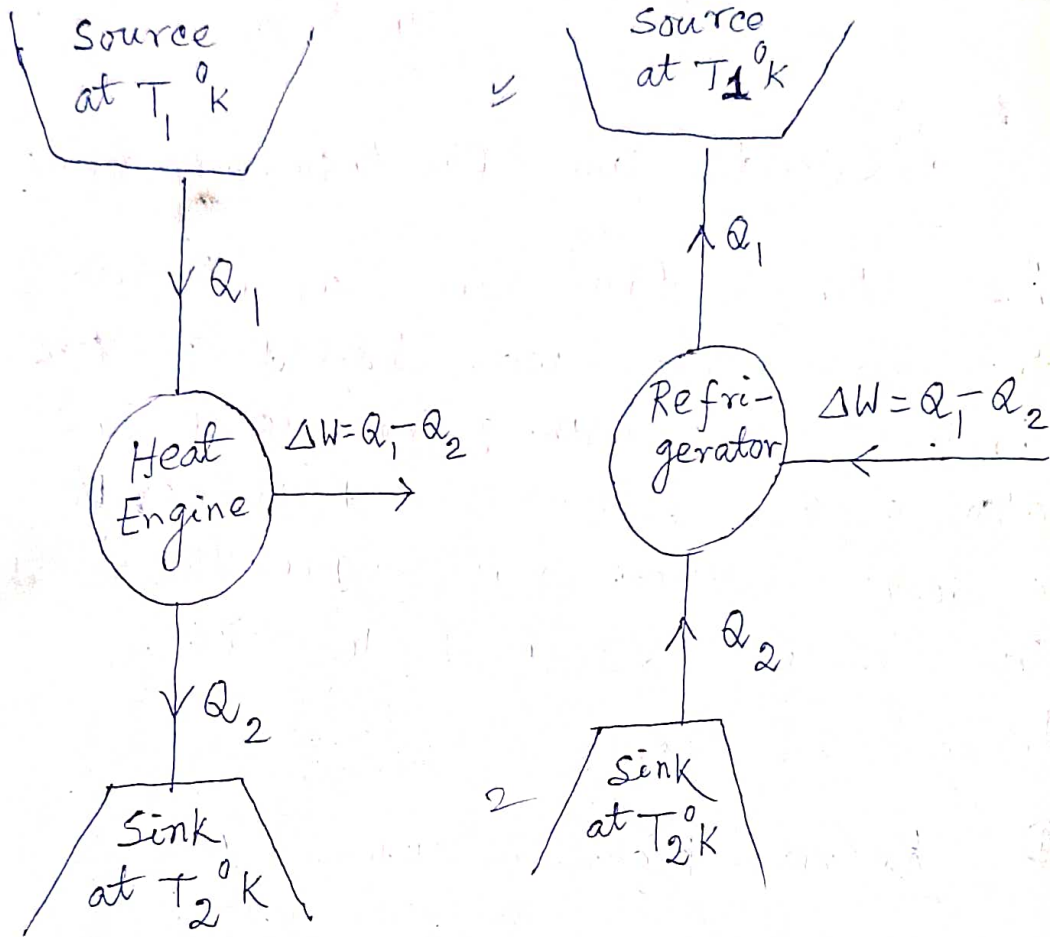 Source
at T₁⁰K
Q₁
Heat
Engine
ΔW=Q₁-Q₂
Q₂
Sink
at T₂⁰K
Source
at T1⁰K
Q₁
Refri-
gerator
ΔW=Q₁-Q₂
Q₂
2
Sink
at T₂⁰K